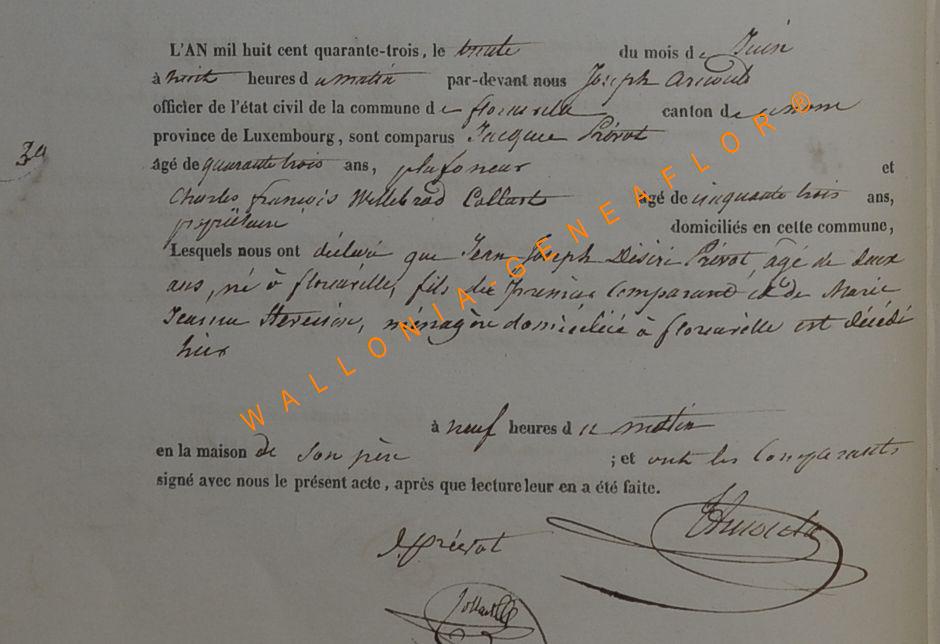 L'AN mil huit cent quarante-trois, le trente du mois de Juin
à huit heures du matin par-devant nous Joseph Arnould
officier de l'état civil de la commune de florenville canton de
province de Luxembourg, sont comparus Jacques Prévot
39
âgé de quarante trois ans, plafoneur et
Charles françois Willebrod Collart âgé de cinquante trois ans,
propriétaire domiciliés en cette commune,
Lesquels nous ont déclaré que Jean Joseph Désiré Prévot, âgé de deux
ans, né à florenville, fils du premier Comparant et de Marie
Jeanne ménagère domiciliée à florenville est décédé
hier
à neuf heures du matin
en la maison de son père ; et ont les Comparants
signé avec nous le présent acte, après que lecture leur en a été faite.
J. Prévot
WALLONIA-GENEAFLOR®